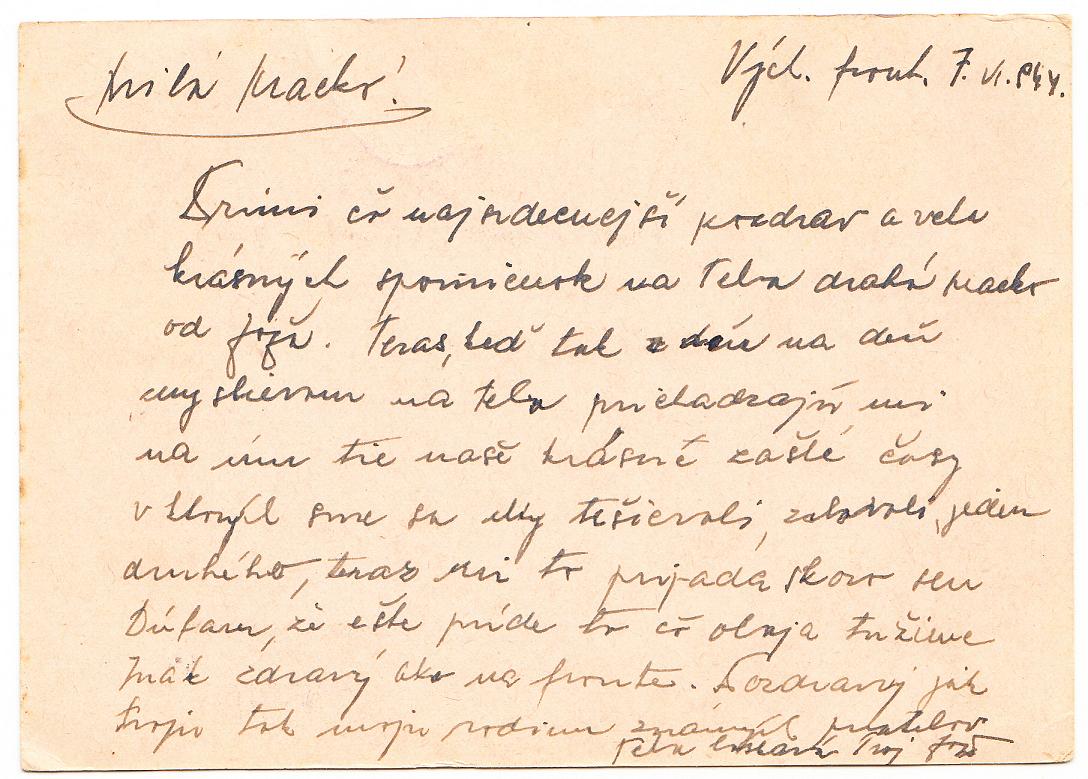 Milá Macko!
Vých. front. 7. VI. 944.
Primi čo najsrdecnejší pozdrav a velo
krásných spomienok na Teba drahá Macko
od Joža. Teras, keď tak z dňa na deň
myslievam na teba prichadzajú mi
na úm tie naše krásné zašlé časy
v ktorých sme sa my tešievali, jeden
druhého, teraz mi to pripadá skoro sen
Dúfam, že ešte príde to čo oboja tužime
Inák zdravý ako na fronte. Pozdravuj jak
tvoju tak moju rodinu známych priatelov
Teba Tvoj Jožo